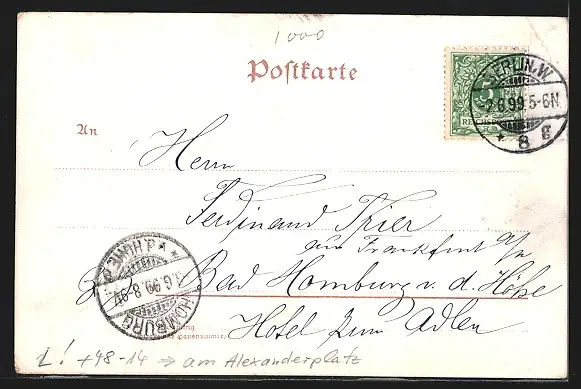 1000
Postkarte
BERLIN.W
2.6.99.5-6N.
* 8 g
5
REICHSPOST
An
Herrn
Ferdinand Thier
aus Frankfurt a/M
Bad Homburg v. d. Höhe
Hotel zum Adler
HOMBURG v.d.HÖHE
3.6.99.8-9V.
L! +98-14 → am Alexanderplatz